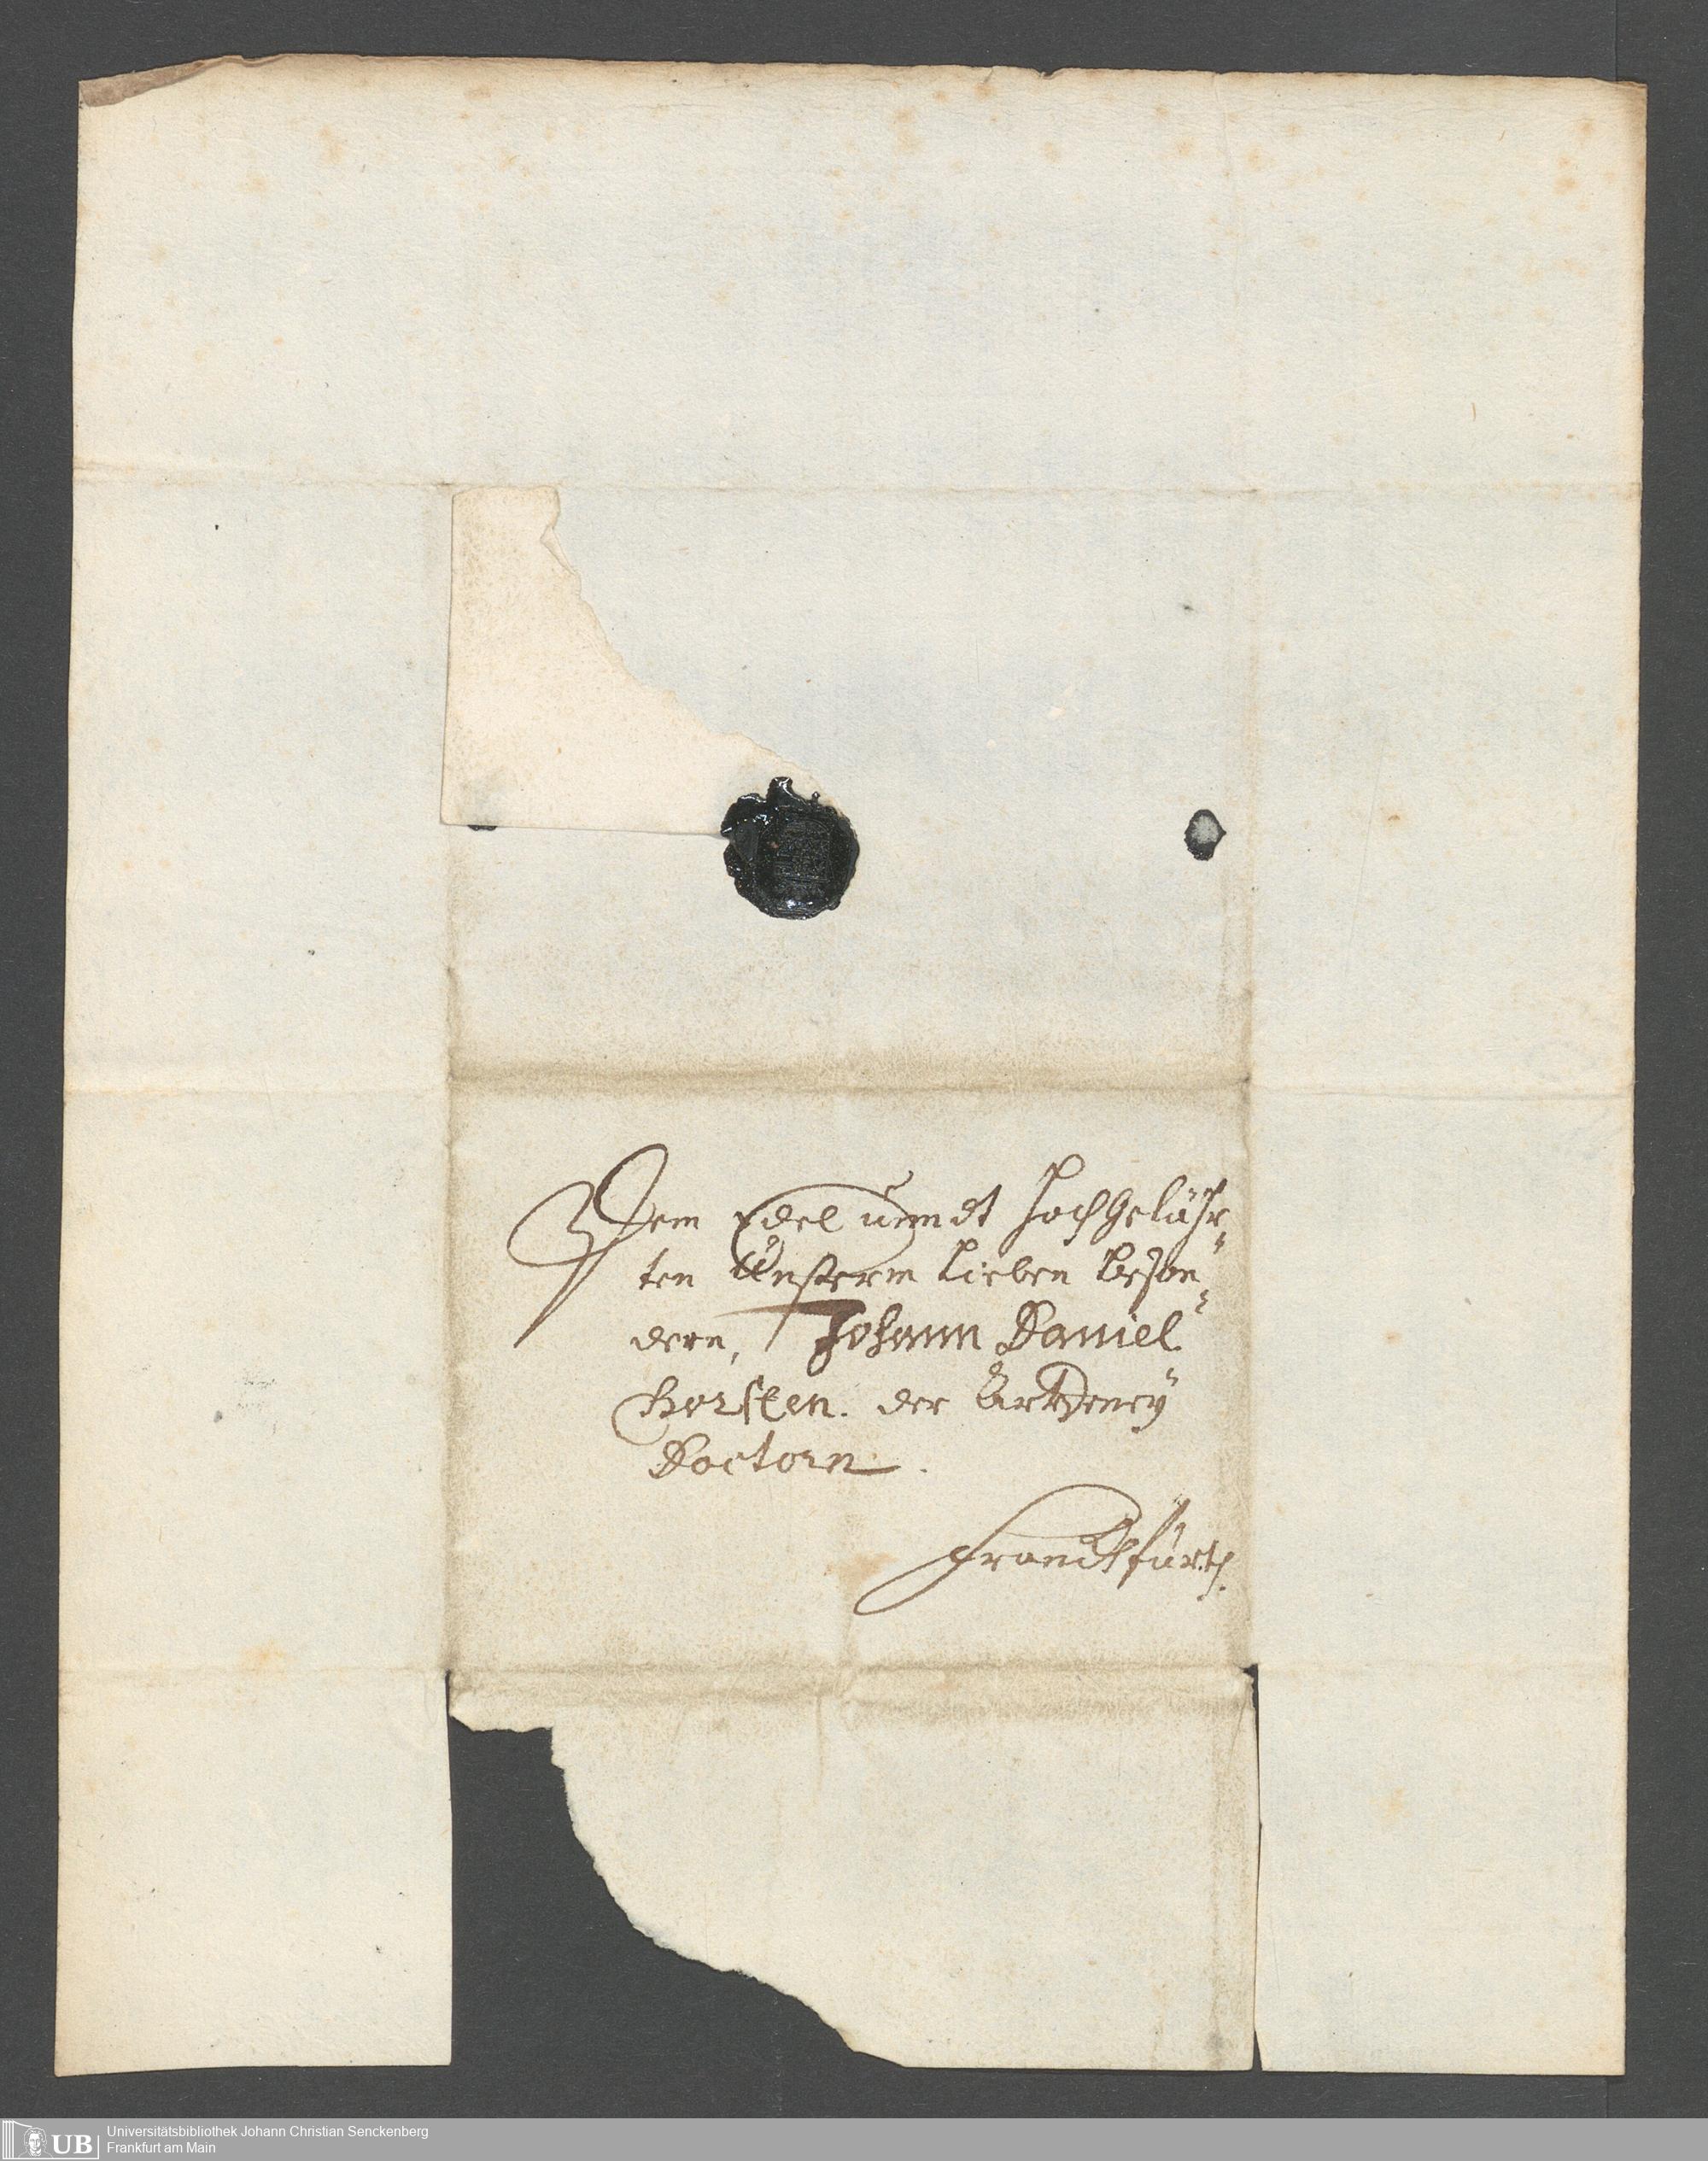 Dem Edel unndt Hochgelähr-
ten Unserm Lieben beson-
dern, Johann Daniel
Horsten. der Artzeney
Doctorn.
Franckfürth.
UB
Universitätsbibliothek Johann Christian Senckenberg
Frankfurt am Main